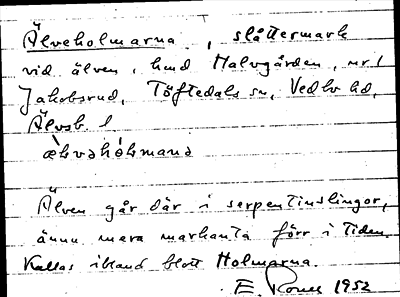 Älveholmarna, slåttermark
vid älven, hmd Halvgården, nr 1
Jakobsrud, Töftedals sn, Vedbo hd,
Älvsb. l
ælvəhòlmana
Älven går där i serpentinslingor,
ännu mera markanta förr i tiden.
Kallas ibland blott Holmarna.
E. 1952